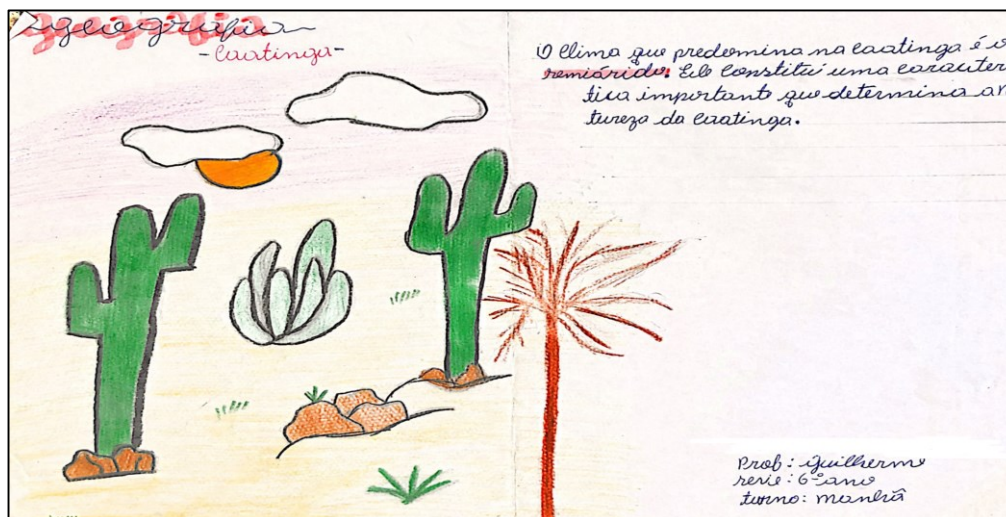 geografia
-Caatinga-
O Clima que predomina na caatinga é o
semiárido. Ele constitui uma caracter
tica importante que determina a na
tureza da caatinga.
Prof: Guilherme
serie: 6º ano
turno: manhã